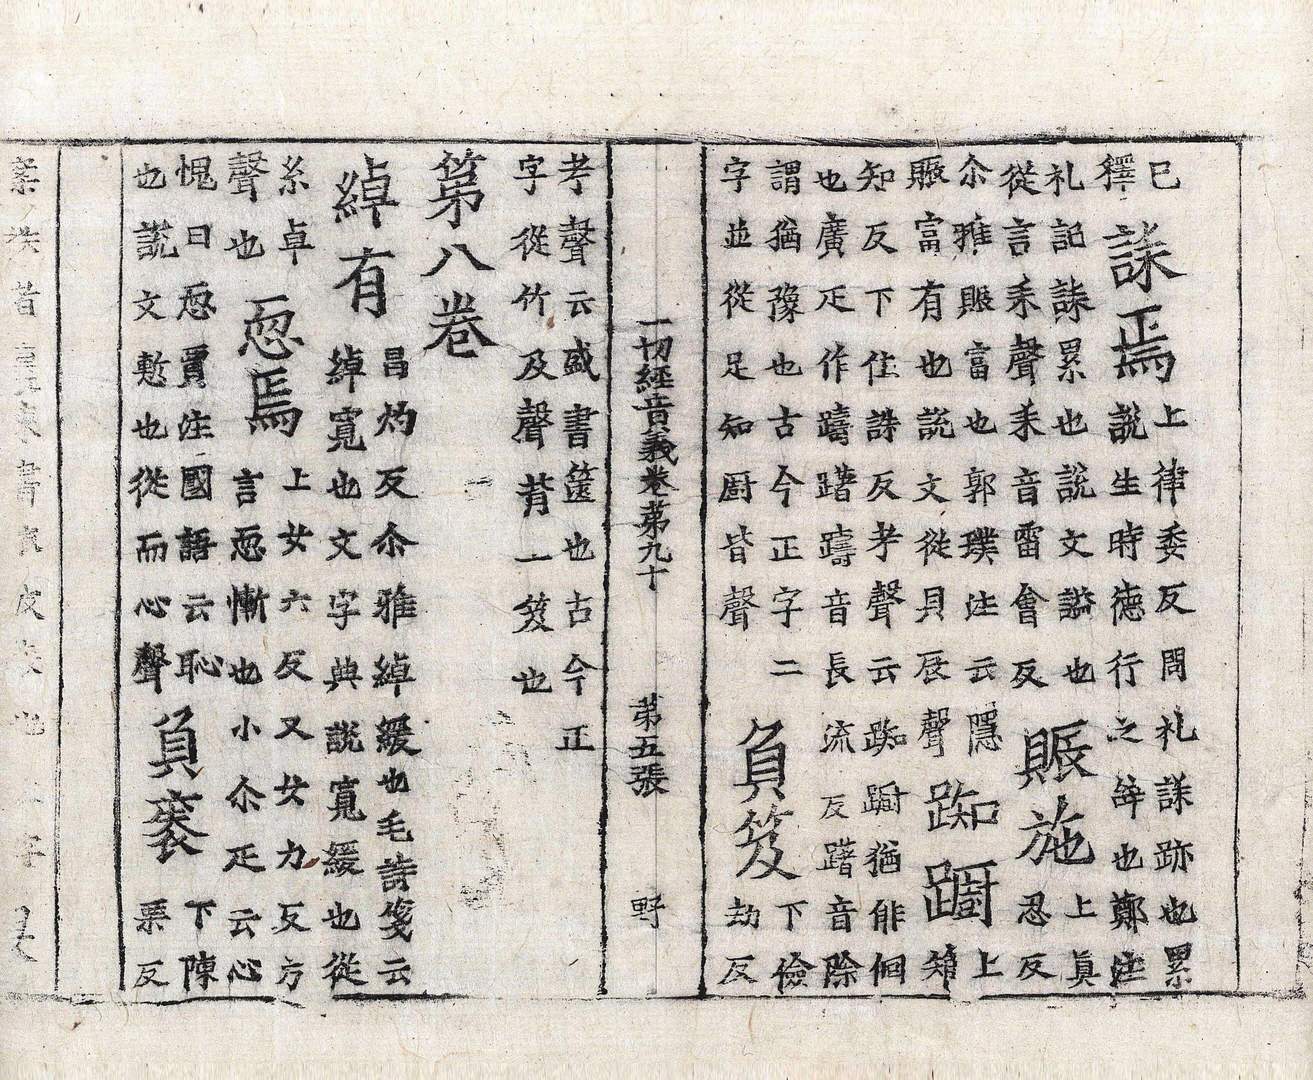 已
釋
誄焉
上律委反周礼誄跡也累
說生時德行之辞也鄭注
礼記誄累也說文謚也
從言耒聲耒音雷會反
賑施
上真
忍反
尒雅賑富也郭璞注云隱
賑富有也說文從貝辰聲
踟蹰
上
知反下住誅反考聲云踟蹰猶俳佪
也廣疋作躊躇躊音長流反躇音除
謂猶豫也古今正字二
字並從足知厨皆聲
負笈
下儉
劫反
一切經音義卷第九十 第五張 野
考聲云盛書篋也古今正
字從竹及聲背一笈也
第八卷
綽有
昌灼反尒雅綽緩也毛詩箋云
綽寛也文字典說寛緩也從
糸卓
聲也
恧焉
上女六反又女力反方
言恧慚也小尒疋云心
愧曰恧賈注國語云恥
也說文慙也從而心聲
負袠
下陳
栗反